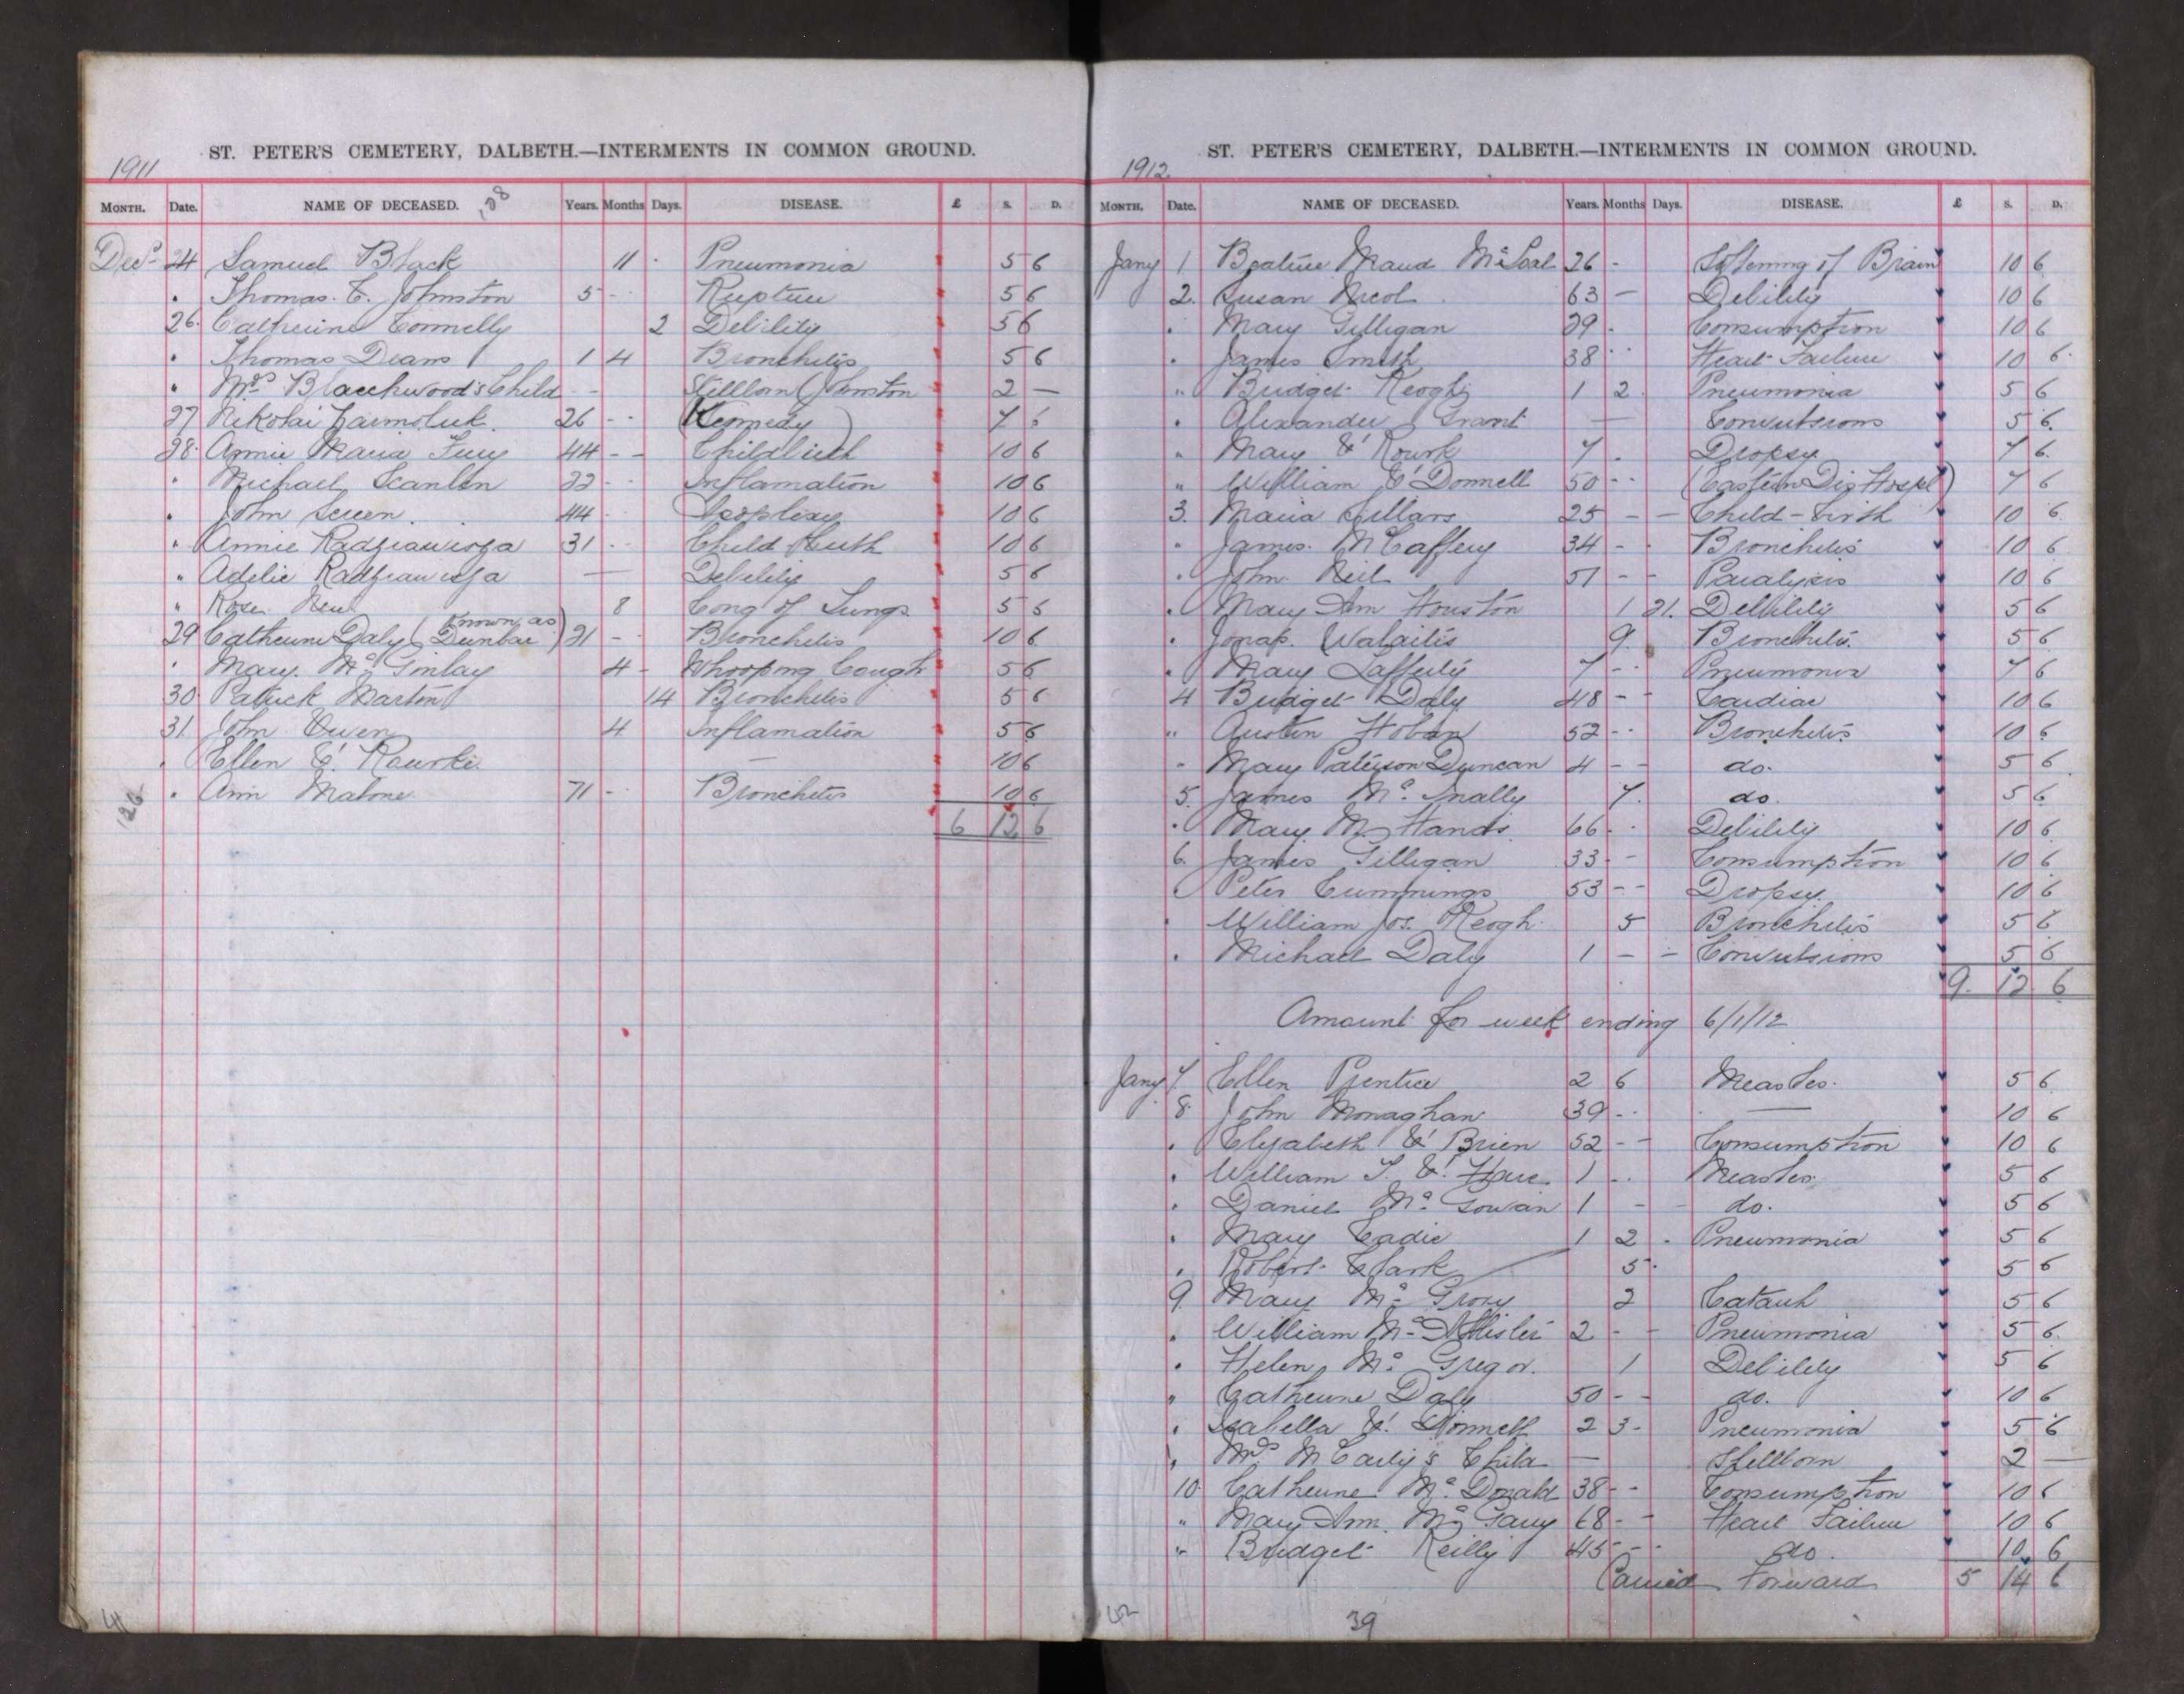 1911
ST. PETER'S CEMETERY, DALBETH.—INTERMENTS IN COMMON GROUND.
MONTH. Date. NAME OF DECEASED. Years. Months Days. DISEASE. £ S. D.
Decr 24 Samuel Black 11 Pneumonia 5 6
" Thomas C. Johnston 5 - Rupture 5 6
26. Catherine Connelly 2 Debility 5 6
" Thomas Deans 1 4 Bronchitis 5 6
" Mrs Blackwood's Child - - Stillborn (Johnston 2 —
27 Nikolai 26 - - (Kennedy) 7 6
28. Annie Maria Fury 44 - - Childbirth 10 6
" Michael Scanlon 22 - - Inflamation 10 6
" John 44 - Apoplexy 10 6
" Annie 31 - - Child Birth 10 6
" Adelie — Debility 5 6
" Rose 8 Cong of Lungs 5 6
29 Catherine Daly (known as Dunbar) 21 - Bronchitis 10 6
" Mary McGinlay 4 - Whooping Cough 5 6
30 Patrick Marton 14 Bronchitis 5 6
31. John Owen 4 Inflamation 5 6
" Ellen O'Rourke — 10 6
" Ann Malone 71 - Bronchitis 10 6
6 12 6
126
41
1912.
ST. PETER'S CEMETERY, DALBETH.—INTERMENTS IN COMMON GROUND.
MONTH. Date. NAME OF DECEASED. Years. Months Days. DISEASE. £ S. D.
Jany 1 Beatrice Maud 26 - Softening of Brain 10 6
2. Susan Nicol 63 — Debility 10 6
" Mary Gilligan 29 - Consumption 10 6
" James Smith 38 - - Heart Failure 10 6
" Bridget Keogh 1 2 Pneumonia 5 6
" Alexander Grant — Convulsions 5 6
" Mary O'Rourk 7 - Dropsy 7 6
" William O'Donnell 50 - - (Eastern Dis Hospl) 7 6
3. Maria Sillars 25 - - Child-birth 10 6
" James McCaffery 34 - - Bronchitis 10 6
" John Neil 51 - - Paralysis 10 6
" Mary Ann Houston 1 21. Debility 5 6
" Jonas. Walaitis 9. Bronchitis 5 6
" Mary Lafferty 7 - - Pneumonia 7 6
4 Bridget Daly 48 - - Cardiac 10 6
" Austin Hoban 52 - - Bronchitis 10 6
" Mary Paterson Duncan 4 - - do. 5 6
5. James McAnally 7. do. 5 6
" Mary 66 - - Debility 10 6
6. James Gilligan 33 - - Consumption 10 6
" Peter Cummings 53 - - Dropsy 10 6
" William Jos. Keogh 5 Bronchitis 5 6
" Michael Daly 1 - - Convulsions 5 6
9. 12 6
Amount for week ending 6/1/12
Jany 7. Ellen Prentice 2 6 Measles. 5 6
8. John Monaghan 39 - - — 10 6
" Elizabeth O'Brien 52 - - Consumption 10 6
" William J. O'Hare 1 - - Measles. 5 6
" Daniel McGowan 1 - - do. 5 6
" Mary Eadie 1 2 - Pneumonia 5 6
" Robert Clark 5 - 5 6
9. Mary McGrory 2 Catarrh 5 6
" William McAllister 2 - - Pneumonia 5 6
" Helen McGregor. 1 Debility 5 6
" Catherine Daly 50 - - do. 10 6
" Isabella O'Donnell 2 3 - Pneumonia 5 6
" Mrs McCarty's Child — Stillborn 2 —
10 Catherine McDonald 38 - - Consumption 10 6
" Mary Ann McGary 68 - - Heart Failure 10 6
" Bridget Reilly 45 - - do. 10 6
Carried Forward 5 14 6
39